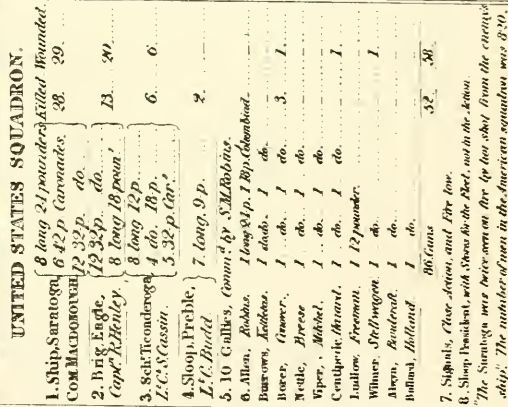 UNITED STATES SQUADRON.
Killed Wounded.
1. Ship, Saratoga, 8 long 24 pounders 28. 29.
Com. MACDONOUGH 6 42 p. Caronades.
12 32 p. do.
2. Brig, Eagle, 12 32 p. do. 13. 20.
Capt. R. Henley. 8 long 18 poun.
3. Sch. Ticonderoga, 8 long 12 p. 6. 6.
Lt. C. S. Cassin. 4 do. 18 p.
5. 32 p. Car.
4. Sloop, Preble, 7. long. 9 p. 2.
Lt. C. Budd.
5. 10 Gallies, Comm'd by S. M. Robins.
6. Allen, Robins. 1 long 24 p. 1 18 p. Columbiad
Burrows, 1 do. 1 do.
Borer, Conover. 1 do. 1 do. 3. 1.
Nettle, Breese 1 do. 1 do.
Viper, Mitchel. 1 do. 1 do.
Centipede, Hazard. 1 do. 1 do. 1.
Ludlow, Freeman. 1 12 pounder.
Wilmer, Stellwagon. 1 do. 1.
Alwyn, 1 do.
Ballard, Holland. 1 do.
86 Guns 52 58
7. Signals, Close Action, and Fire low.
8. Sloop President, with Stores for the Fleet, not in the Action.
"The Saratoga was twice seen on fire by hot shot from the enemy's
ship." The number of men in the American squadron was 820.